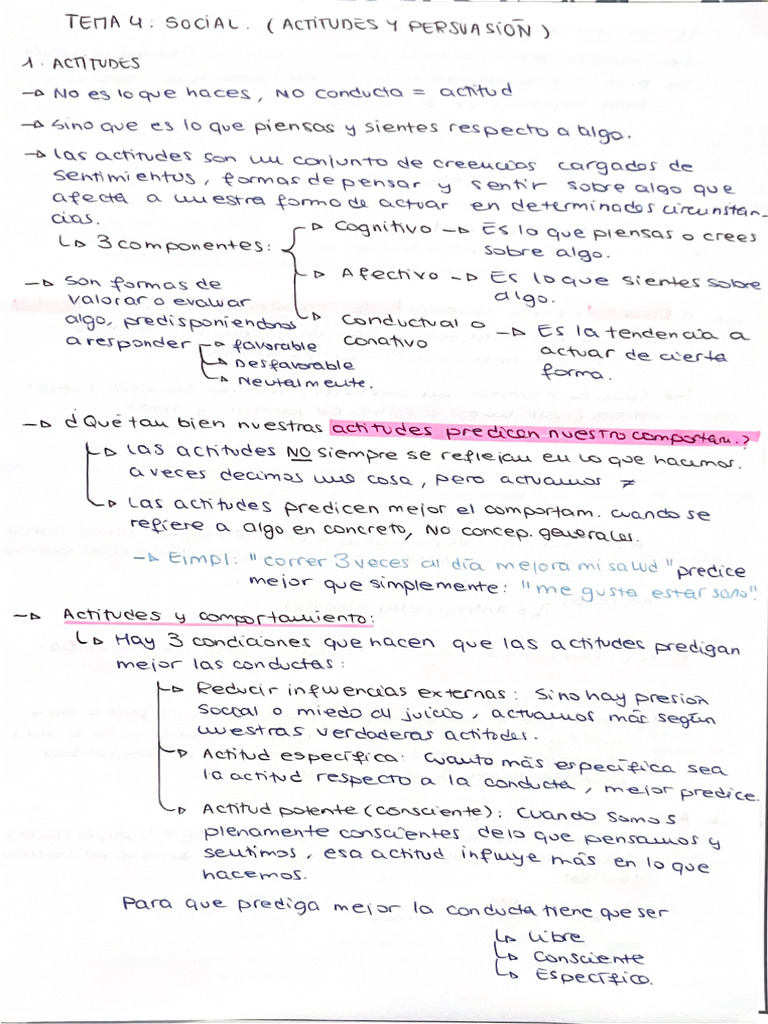 TEMA 4: SOCIAL. (ACTITUDES Y PERSUASIÓN)
1. ACTITUDES
→ No es lo que haces, NO conducta = actitud
→ Sino que es lo que piensas y sientes respecto a algo.
→ Las actitudes son un conjunto de creencias cargados de
sentimientos, formas de pensar y sentir sobre algo que
afecta a nuestra forma de actuar en determinadas circunstan-
cias.
↳ 3 componentes:
→ Cognitivo → Es lo que piensas o crees
sobre algo.
→ Afectivo → Es lo que sientes sobre
algo.
→ conductual o
conativo
→ Es la tendencia a
actuar de cierta
forma.
→ Son formas de
valorar o evaluar
algo, predisponiendonos
a responder → favorable
→ Desfavorable
→ Neutalmente.
→ ¿Qué tan bien nuestras actitudes predicen nuestro comportam.?
→ Las actitudes NO siempre se reflejan en lo que hacemos.
a veces decimos una cosa, pero actuamos ≠
→ Las actitudes predicen mejor el comportam. cuando se
refiere a algo en concreto, NO concep. generales.
→ Eimpl: "correr 3 veces al día mejora mi salud" predice
mejor que simplemente: "me gusta estar sano".
→ Actitudes y comportamiento:
↳ Hay 3 condiciones que hacen que las actitudes predigan
mejor las conductas:
→ Reducir influencias externas: Si no hay presión
social o miedo al juicio, actuamos más según
nuestras verdaderas actitudes.
→ Actitud específica: Cuanto más específica sea
la actitud respecto a la conducta, mejor predice.
→ Actitud potente (consciente): Cuando somos
plenamente conscientes de lo que pensamos y
sentimos, esa actitud influye más en lo que
hacemos.
Para que prediga mejor la conducta tiene que ser
→ Libre
→ Consciente
→ Específico.